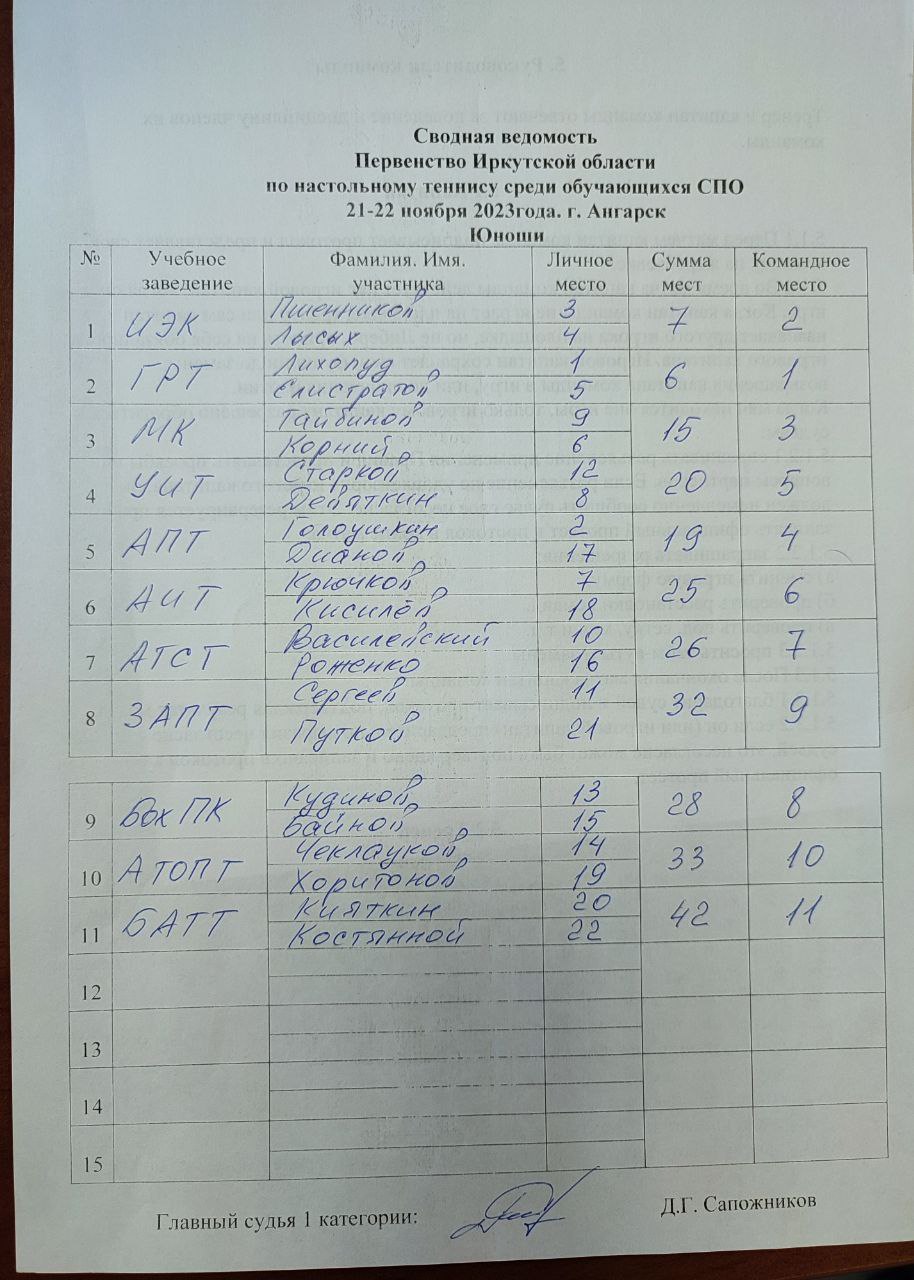 Сводная ведомость
Первенство Иркутской области
по настольному теннису среди обучающихся СПО
21-22 ноября 2023года. г. Ангарск
Юноши
№ Учебное заведение Фамилия. Имя. участника Личное место Сумма мест Командное место
1 ИЭК Пшенников 3 7 2
Лысых 4
2 ГРТ Лихопуд 1 6 1
Елистратов 5
3 МК Тайбинов 9 15 3
Корний 6
4 УИТ Старков 12 20 5
Девяткин 8
5 АПТ Головушкин 2 19 4
Дианов 17
6 АИТ Крючков 7 25 6
Кисилёв 18
7 АТСТ Василевский 10 26 7
Роженко 16
8 ЗАПТ Сергеев 11 32 9
Путков 21
9 БохПК Кудинов 13 28 8
Байнов 15
10 АТОПТ 14 33 10
Хоритонов 19
11 БАТТ Кияткин 20 42 11
Костянной 22
12
13
14
15
Главный судья 1 категории: Д.Г. Сапожников